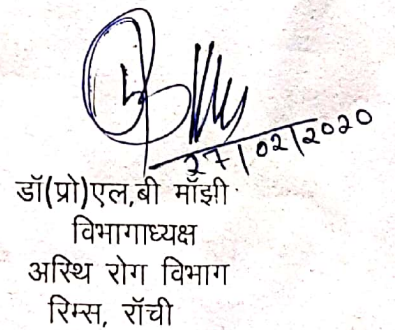 27/02/2020
डॉ(प्रो)एल,बी माँझी
विभागाध्यक्ष
अस्थि रोग विभाग
रिम्स, राँची